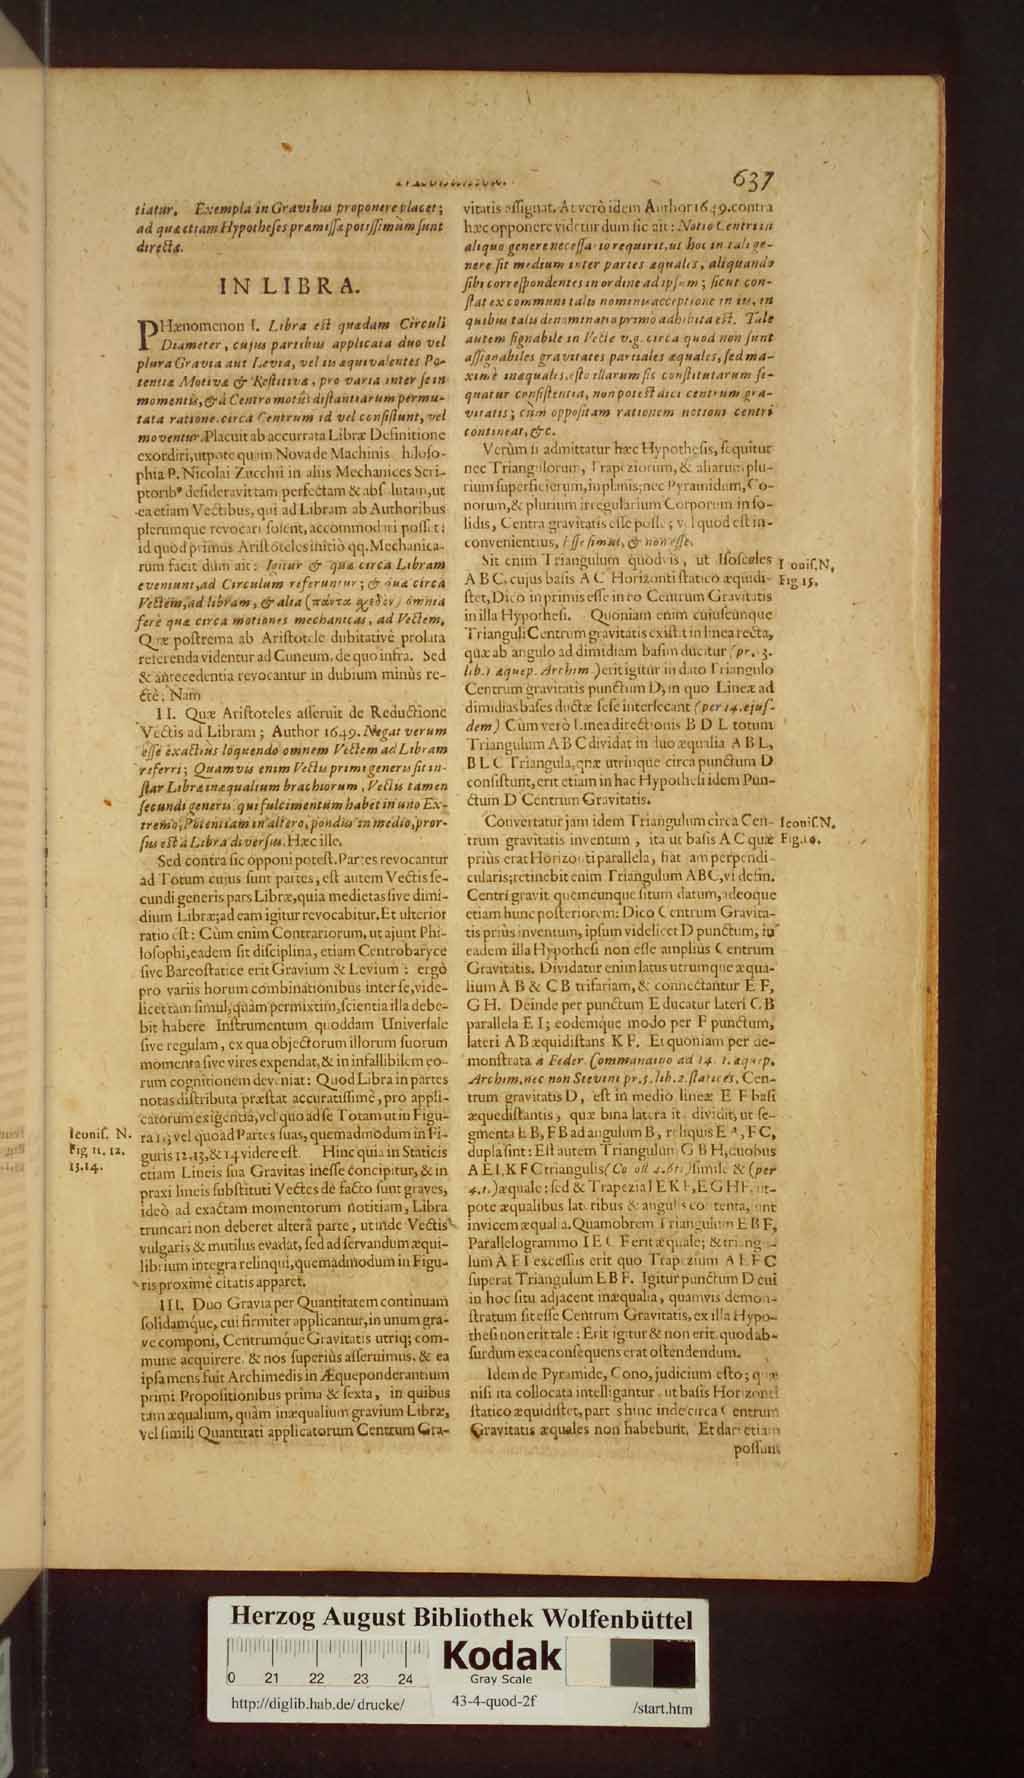 637
tiatur. Exempla in Gravibus proponere placet;
ad quæ etiam Hypotheses præmissæ potissimùm sunt
directæ.
IN LIBRA.
PHænomenon I. Libra est quædam Circuli
Diameter, cujus partibus applicata duo vel
plura Gravia aut Levia, vel iis æquivalentes Po-
tentiæ Motivæ & Restitivæ, pro varia inter se in
momentis, & à Centro motûs distantiarum permu-
tata ratione, circa Centrum id vel consistunt, vel
moventur. Placuit ab accurrata Libræ Definitione
exordiri, utpote quam Nova de Machinis
phia P. Nicolai Zucchii in aliis Mechanices Scri-
ptoribꝰ desideravit tam perfectam & absolutam, ut
ea etiam Vectibus, qui ad Libram ab Authoribus
plerumque revocari solent, accommodari posset:
id quod primus Aristoteles initio qq. Mechanica-
rum facit dum ait: Igitur & quæ circa Libram
eveniunt, ad Circulum referuntur; & quæ circa
Vectem, ad libram, & alia (πάντα σχεδὸν) omnia
ferè quæ circa motiones mechanicas, ad Vectem,
Quæ postrema ab Aristotele dubitativè prolata
referenda videntur ad Cuneum, de quo infra. Sed
& antecedentia revocantur in dubium minùs re-
ctè. Nam
II. Quæ Aristoteles asseruit de Reductione
Vectis ad Libram; Author 1649. Negat verum
esse exactius loquendo omnem Vectem ad Libram
referri; Quamvis enim Vectis primi generis sit in-
star Libræ inæqualium brachiorum, Vectis tamen
secundi generis, qui fulcimentum habet in uno Ex-
tremo, Potentiam in altero, pondus in medio, pror-
sus est à Libra diversus. Hæc ille.
Sed contra sic opponi potest. Partes revocantur
ad Totum cujus sunt partes, est autem Vectis se-
cundi generis pars Libræ, quia medietas sive dimi-
dium Libræ; ad eam igitur revocabitur. Et ulterior
ratio est: Cùm enim Contrariorum, ut ajunt Phi-
losophi, eadem sit disciplina, etiam Centrobaryce
sive Bareostatice erit Gravium & Levium: ergò
pro variis horum combinationibus inter se, vide-
licet tam simul, quàm permixtim, scientia illa debe-
bit habere Instrumentum quoddam Universale
sive regulam, ex qua objectorum illorum suorum
momenta sive vires expendat, & in infallibilem eo-
rum cognitionem deveniat: Quod Libra in partes
notas distributa præstat accuratissimè, pro appli-
catorum exigentia, vel quo ad se Totam ut in Figu-
ra 11; vel quoad Partes suas, quemadmodum in Fi-
guris 12, 13, & 14 videre est. Hinc quia in Staticis
etiam Lineis sua Gravitas inesse concipitur, & in
praxi lineis substituti Vectes de facto sunt graves,
ideò ad exactam momentorum notitiam, Libra
truncari non deberet alterâ parte, ut inde Vectis
vulgaris & mutilus evadat, sed ad servandum æqui-
librium integra relinqui, quemadmodum in Figu-
ris proximè citatis apparet.
Iconis. N.
Fig 11. 12.
13. 14.
III. Duo Gravia per Quantitatem continuam
solidamque, cui firmiter applicantur, in unum gra-
ve componi, Centrumque Gravitatis utriq; com-
mune acquirere & nos superiùs asseruimus, & ea
ipsa mens fuit Archimedis in Æqueponderantium
primi Propositionibus prima & sexta, in quibus
tam æqualium, quàm inæqualium gravium Libræ,
vel simili Quantitati applicatorum Centrum Gra-
vitatis assignat. At verò idem Author 1649. contra
hæc opponere videtur dum sic ait: Notio Centri in
aliquo genere necessario requirit, ut hoc in tali ge-
nere sit medium inter partes æquales, aliquando
sibi correspondentes in ordine ad ipsum; sicut con-
stat ex communi talis nominis acceptione in iis, in
quibus talis denominatio primò adhibita est. Tale
autem signabile in Vecte v.g. circa quod non sunt
assignabiles gravitates partiales æquales, sed ma-
ximè inæquales, esto illarum sic constitutarum se-
quatur consistentia, non potest dici centrum gra-
vitatis; cùm oppositam rationem notioni centri
contineat, &c.
Verùm si admittatur hæc Hypothesis, sequitur
nec Triangulorum, Trapeziorum, & aliarum plu-
rium superficierum, in planis; nec Pyramidum, Co-
norum, & plurium irregularium Corporum in so-
lidis, Centra gravitatis esse posse; vel quod est in-
convenientius, Esse simul, & non esse.
Sit enim Triangulum quodvis, ut Isosceles
A B C, cujus basis A C Horizonti statico æquidi-
stet, Dico in primis esse in eo Centrum Gravitatis
in illa Hypothesi. Quoniam enim cujuscunque
Trianguli Centrum gravitatis existit in linea recta,
quæ ab angulo ad dimidiam basim ducitur (pr. 13.
lib. 1 æquep. Archim.) erit igitur in dato Triangulo
Centrum gravitatis punctum D, in quo Lineæ ad
dimidias bases ductæ sese intersecant (per 14. ejus-
dem) Cùm verò Linea directionis B D L totum
Triangulum A B C dividat in duo æqualia A B L,
B L C Triangula, quæ utrinque circa punctum D
consistunt, erit etiam in hac Hypothesi idem Pun-
ctum D Centrum Gravitatis.
Iconis. N.
Fig 15.
Convertatur jam idem Triangulum circa Cen-
trum gravitatis inventum, ita ut basis A C quæ
priùs erat Horizonti parallela, fiat jam perpendi-
cularis; retinebit enim Triangulum ABC, vi defin.
Centri gravit. quemcunque situm datum, adeoque
etiam hunc posteriorem: Dico Centrum Gravita-
tis priùs inventum, ipsum videlicet D punctum, in
eadem illa Hypothesi non esse ampliùs Centrum
Gravitatis. Dividatur enim latus utrumque æqua-
lium A B & C B trifariam, & connectantur E F,
G H. Deinde per punctum E ducatur lateri C B
parallela E I; eodemque modo per F punctum,
lateri A B æquidistans K F. Et quoniam per de-
monstrata à Feder. Commandino ad 14. 1. æquep.
Archim. nec non Stevini pr. 5. lib. 2. statices, Cen-
trum gravitatis D, est in medio lineæ E F basi
æquedistantis, quæ bina latera ita dividit, ut se-
gmenta E B, F B ad angulum B, reliquis E A, F C,
dupla sint: Est autem Triangulum G B H, duobus
A E I, K F C triangulis simile & (per
4. 1.) æquale: sed & Trapezia I E K F, E G H F, ut-
pote æqualibus lateribus & angulis contenta, sunt
invicem æqualia. Quamobrem Triangulum E B F,
Parallelogrammo I E C F erit æquale; & triangu-
lum A E I excessus erit quo Trapezium A E F C
superat Triangulum E B F. Igitur punctum D cui
in hoc situ adjacent inæqualia, quamvis demon-
stratum sit esse Centrum Gravitatis, ex illa Hypo-
thesi non erit tale: Erit igitur & non erit, quod ab-
surdum ex ea consequens erat ostendendum.
Iconis. N.
Fig. 16.
Idem de Pyramide, Cono, judicium esto; quæ
nisi ita collocata intelligantur, ut basis Horizonti
statico æquidistet, partes hinc inde circa Centrum
Gravitatis æquales non habebunt. Et dari etiam
possunt
Herzog August Bibliothek Wolfenbüttel
0 21 22 23 24
Kodak
Gray Scale
http://diglib.hab.de/drucke/
43-4-quod-2f
/start.htm